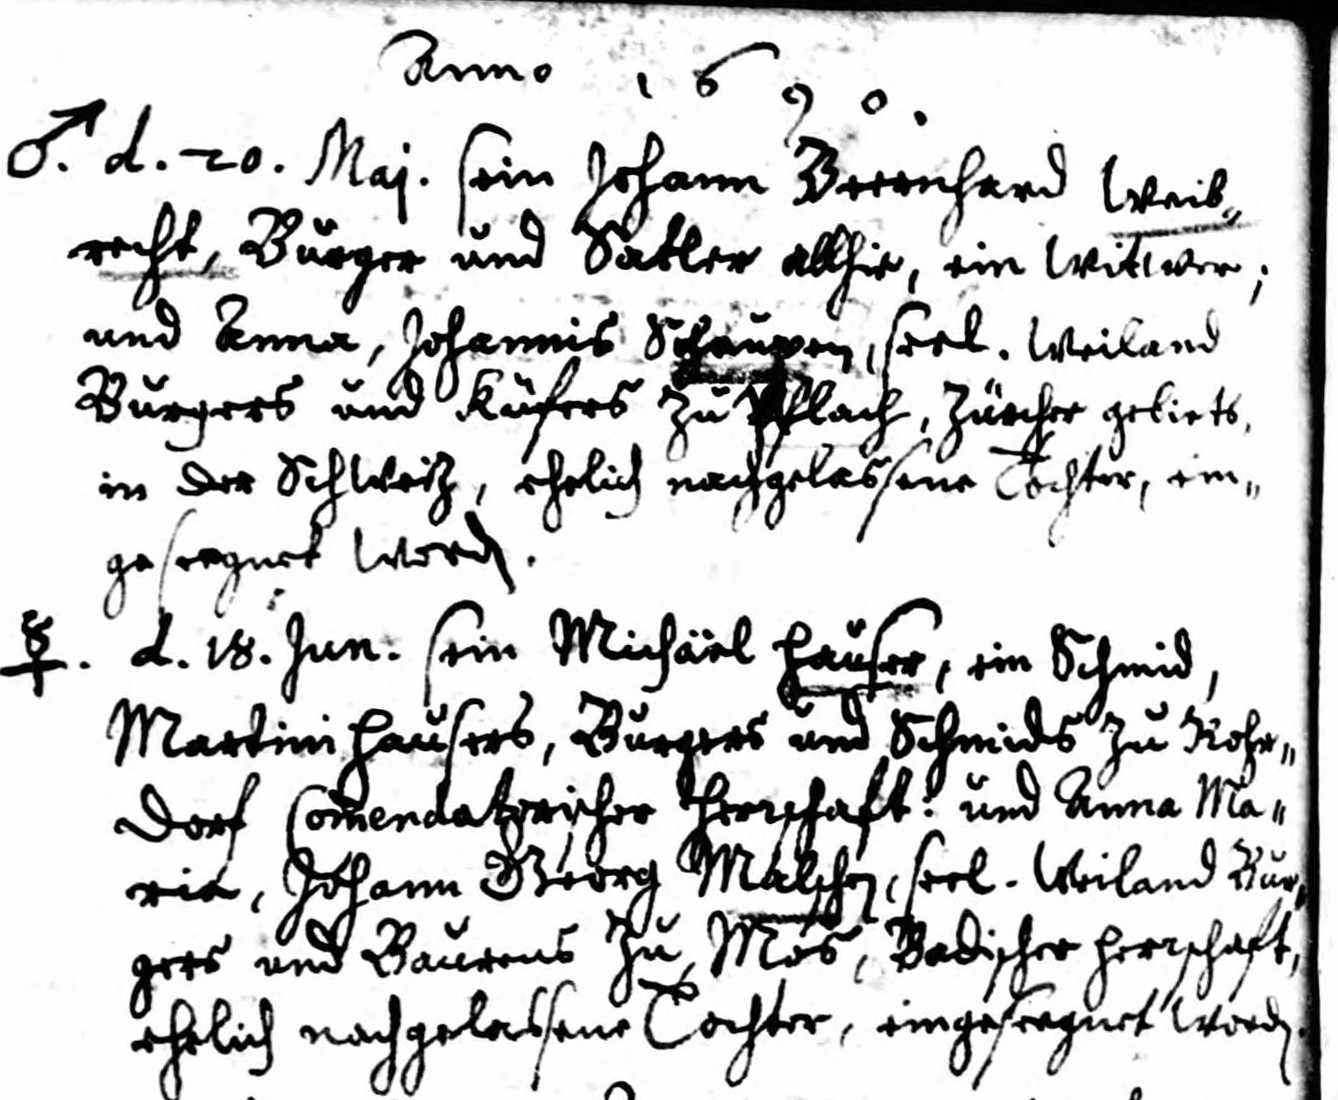 Anno 1690.
♂. d. 20. Maj. sein Johann Bernhard Weib„
recht, Burger und Satler allhie, ein Wittwer,
und Anna, Johannis seel. Weiland
Burgers und Küfers zu Zürcher gebiets,
in der Schweitz, ehelich nachgelassene Tochter, ein„
gesegnet word.
☿. d. 18. Jun. sein Michäel Hauser, ein Schmid,
Martini Hausers, Burgers und Schmids zu Rohr„
dorf Comendatorischer Herrschafft: und Anna Ma„
ria, Johann Georg seel. Weiland Bur„
gers und Baurens zu Mös, Badischer Herrschafft,
ehelich nachgelassene Tochter, eingesegnet word.